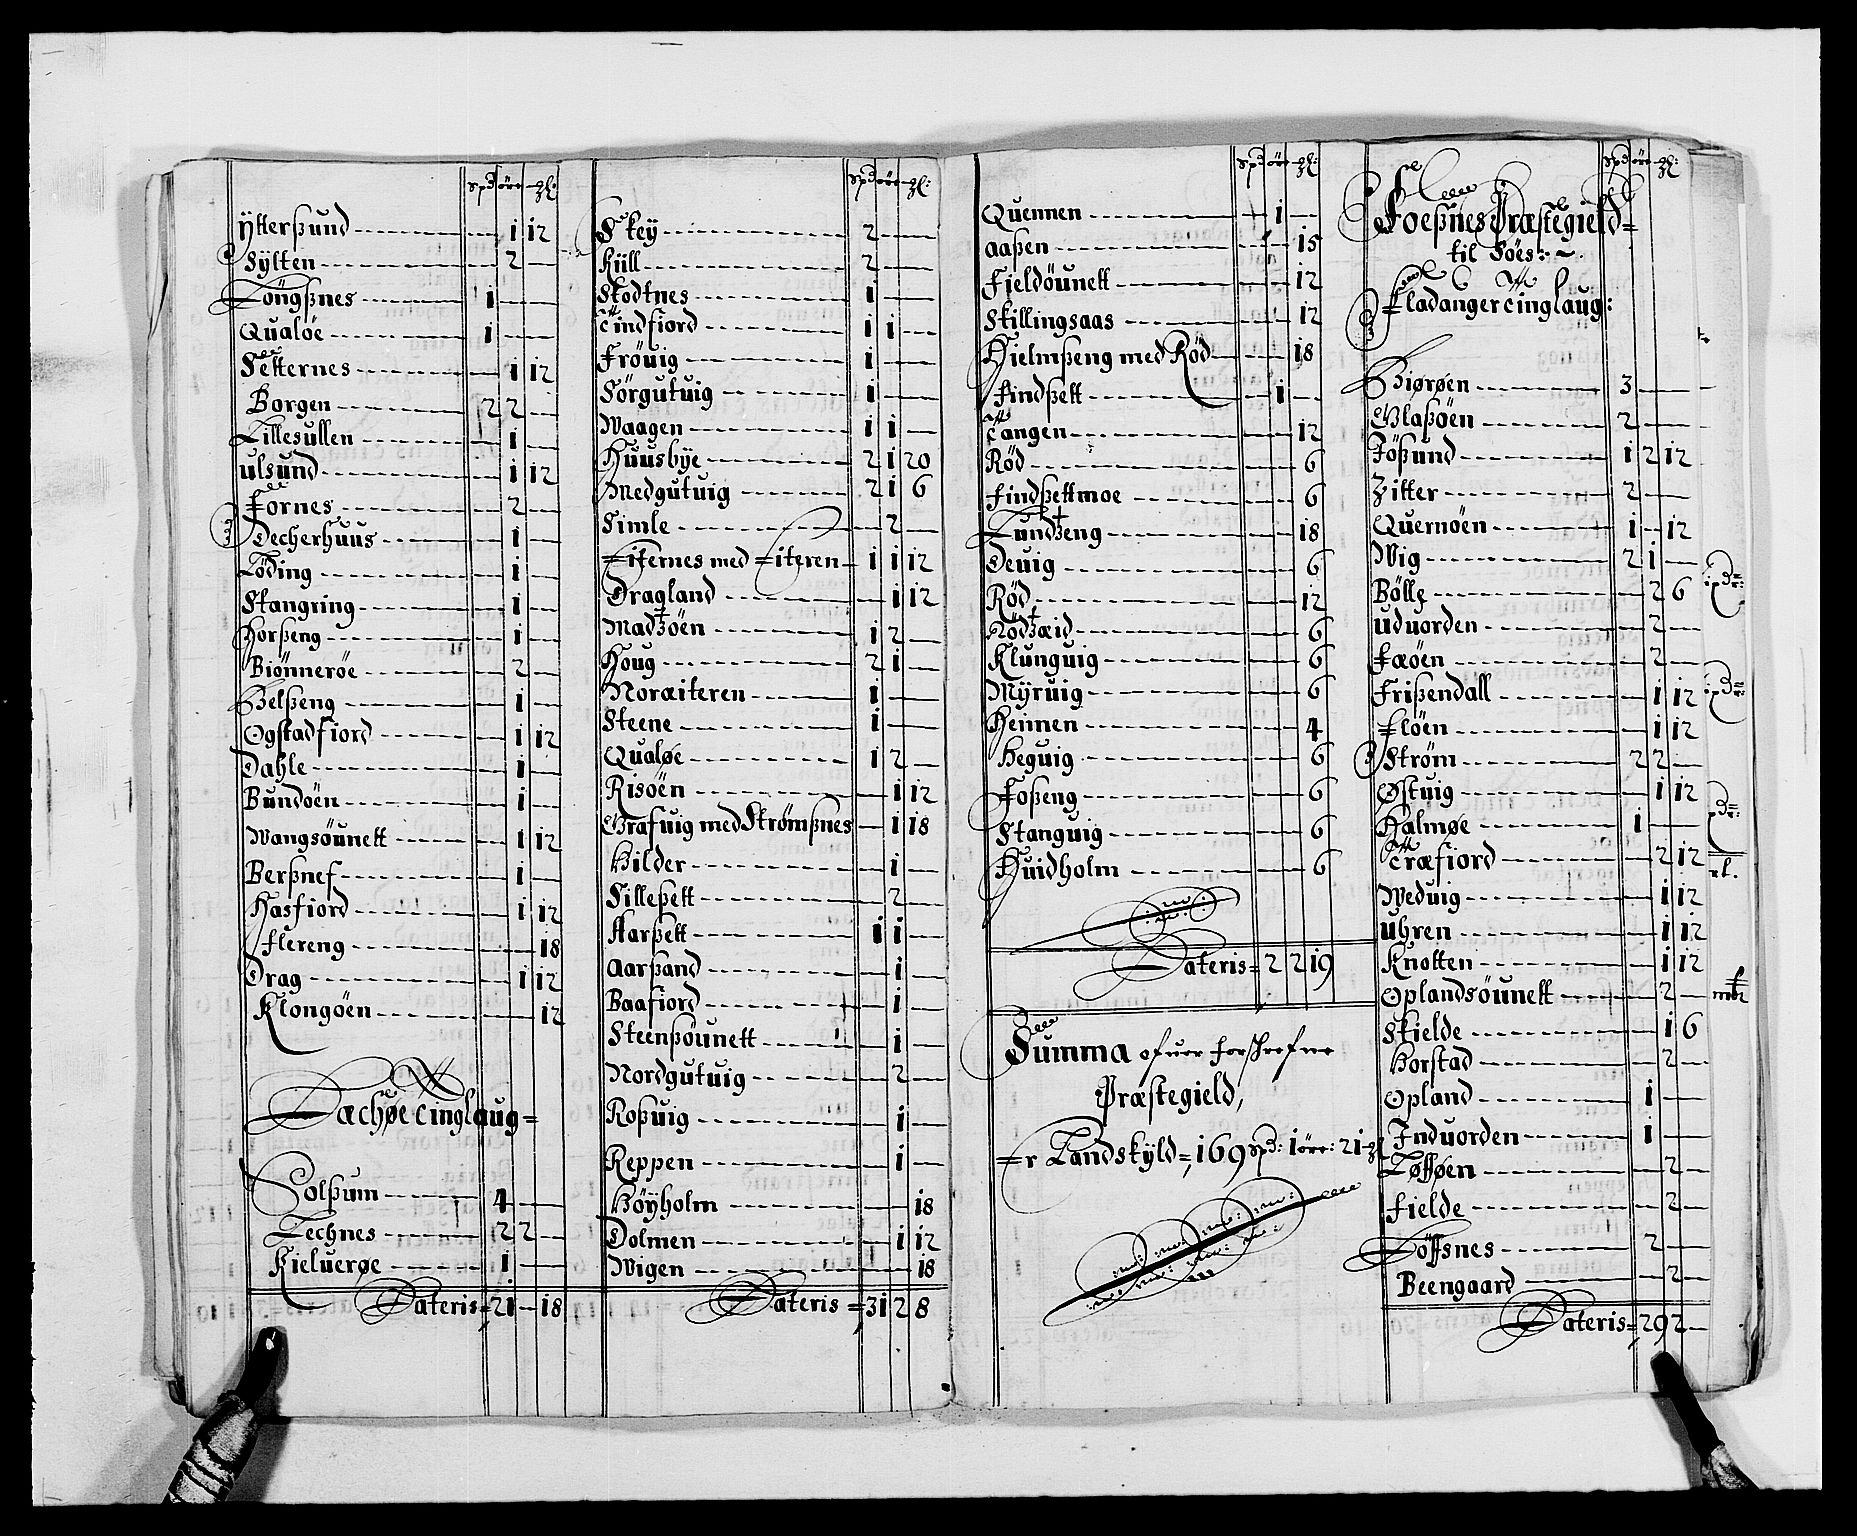 Spd öre
Ÿtterßund 1 12
Sÿlten 2
Löngßnes 1
Qualöe 1
Setternes 1 12
Borgen 2 2
Lillesullen 1
Ulsund 1 12
Fornes 2
Decherhuus 1
Löding 1
Stangring 1
Horßeng 1
Biönneröe 2
Helßeng 1
Ogstadfiord 1 12
Dahle 1
Bundöen 1
Wangsöunett 1 12
Berßnef 1
Hasfiord 1 12
Flereng 18
Drag 1 12
Klongöen 12
Solßum 4
Technes 2 2
Kieluerøe 1
Lateris = 21 – 18
Spd öre
Skeÿ 2
Kiill 2
Stodtnes 1
Tindfiord 1 1
Fröuig 1
Sörgutuig 1
Waagen 1 1
Huusbÿe 2 1 20
Medgutuig 2 1 6
Simle 2
Eiternes med Eiteren 1 1 12
Dragland 1 12
Madtzöen 1 2
Houg 2 1
Noræiteren 1
Steene 1
Qualøe 1 2
Risöen 1 12
Grafuig med Strömßnes 1 18
Hilder 1
Silleßett 2
Harßett 1 1
Aarßand 1
Baafiord 1
Steenßöunett 1
Nordgutuig 2
Roßuig 1
Reppen 1
Höÿholm 18
Dolmen 1 12
Wigen 18
Lateris = 31 2 8
Spd öre
Quennen 1
Aaßen 15
Fieldöunett 12
Skillingsaas 12
Hielmßeng med Röd 18
Findßett 1
Tangen 12
Röd 6
Findßettmoe 6
Lundtzeng 18
Deuig 6
Röd 12
Rödtzæid 6
Klunguig 6
Mÿruig 6
Heimen 4
Heguig 6
Foßeng 6
Stanguig 6
Huidholm 6
Lateris = 2 2 19
Summa ofuer forschrefne
Præstegield,
Er Landskÿld = 169 spd: 1 öre: 21
Spd öre
Foeßnes Præstegield =
til Söes:
Fladanger Tinglaug:
Biørøen 3
Glaßöen 2
Jößund 1 2 12
Zitter 2
Quernöen 1 12
Wig 2 1
Bölle 2 6
Uduorden 2
Fæöen 2
Frißendall 1 12
Flöen 1 12
Ström 2 2
Østuig 1 12
Halmøe 1
Træfiord 2 12
Weduig 1 12
Uhren 1 12
Knotten 1 12
Oplandsöunett 2
Skielde 1 6
Horstad 2
Opland 1
Induorden 1
Løfføen 2
Fielde 2
Löffsnes 2
Beengaard 2
Lateris = 29 2